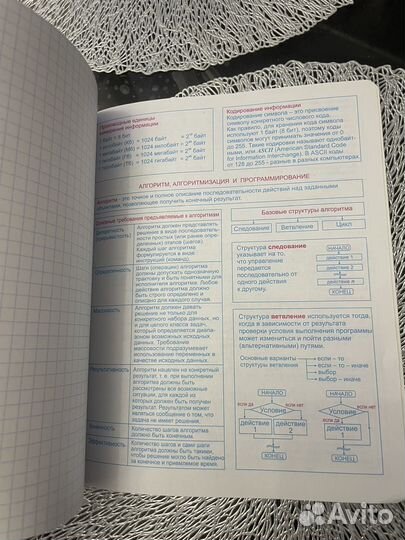 Производные единицы
измерения информации
1 байт = 8 бит
1 килобайт (Кб) = 1024 байт = 2¹⁰ байт
1 мегабайт (Мб) = 1024 килобайт = 2²⁰ байт
1 гигабайт (Гб) = 1024 мегабайт = 2³⁰ байт
1 терабайт (Тб) = 1024 гигабайт = 2⁴⁰ байт
Кодирование информации
Кодирование символа – это присвоение
символу конкретного числового кода.
Как правило, для хранения кода символа
используют 1 байт (8 бит), поэтому коды
символов могут принимать значения от 0
до 255. Такие кодировки называют однобайт-
ными, или ASCII (American Standard Code
for Information Interchange). В ASCII коды
от 128 до 255 - разные в разных компьютерах.
АЛГОРИТМ, АЛГОРИТМИЗАЦИЯ И ПРОГРАММИРОВАНИЕ
Алгоритм - это точное и полное описание последовательности действий над заданными
объектами, позволяющее получить конечный результат.
Основные требования предъявляемые к алгоритмам
Дискретность
Алгоритм должен представлять
решение в виде последователь-
ности простых (или ранее опре-
деленных) этапов (шагов).
Каждый шаг алгоритма
формулируется в виде
инструкций (команд).
Определенность
Шаги (операции) алгоритма
должны допускать однозначную
трактовку и быть понятными для
исполнителя алгоритма. Любое
действие алгоритма должно
быть строго определено и
описано для каждого случая.
Массовость
Алгоритм должен давать
решение не только для
конкретного набора данных, но
и для целого класса задач,
который определяется диапа-
зоном возможных исходных
данных. Требование
массовости подразумевает
использование переменных в
качестве исходных данных.
Результативность
Алгоритм нацелен на конкретный
результат, т. е. при выполнении
алгоритма должны быть
рассмотрены все возможные
ситуации, для каждой из
которых должен быть получен
результат. Результатом может
являться сообщение о том, что
задача не имеет решения.
Конечность
Количество шагов алгоритма
должно быть конечным.
Эффективность
Количество и сами шаги
алгоритма должны быть такими,
чтобы решение могло быть найдено
за конечное и приемлемое время.
Базовые структуры алгоритма
Следование Ветвление Цикл
Структура следование
указывает на то,
что управление
передается
последовательно от
одного действия
к другому.
НАЧАЛО
действие 1
действие 2
действие n
КОНЕЦ
Структура ветвление используется тогда,
когда в зависимости от результата
проверки условия выполнения программы
может измениться и пойти разными
(альтернативными) путями.
Основные варианты
структуры ветвления
если – то
если – то – иначе
выбор
выбор – иначе
НАЧАЛО НАЧАЛО
если да если нет если да если нет
Условие Условие
действие 1 действие 2 действие 1
КОНЕЦ КОНЕЦ
Avito